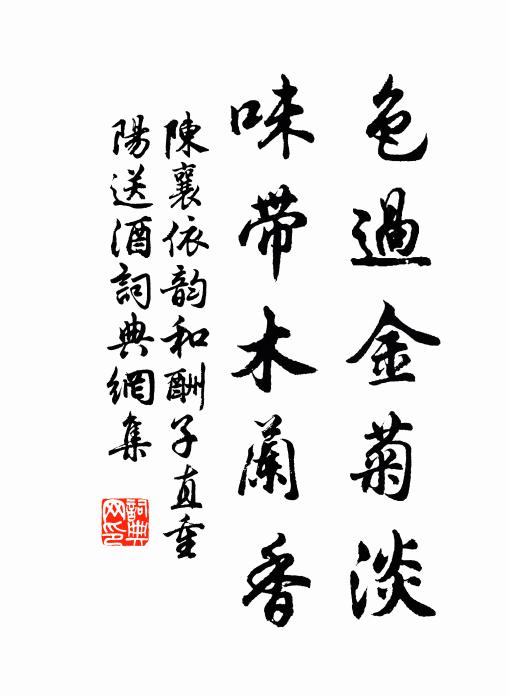 色過金菊淡
味帶木蘭香
陳襄依韵和酬子直重
陽送酒詞典網集
詞典
网印